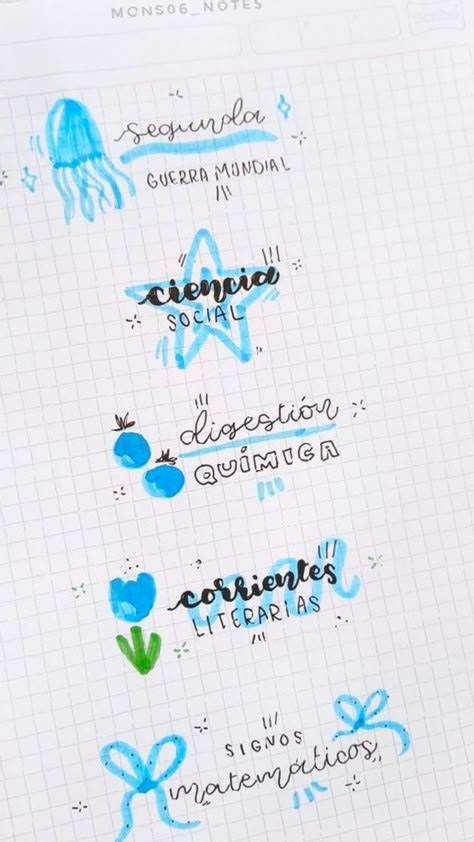 MONS06_NOTES
segunda
GUERRA MUNDIAL
ciencia
SOCIAL
digestión
QUÍMICA
corrientes
LITERARIAS
SIGNOS
matemáticos